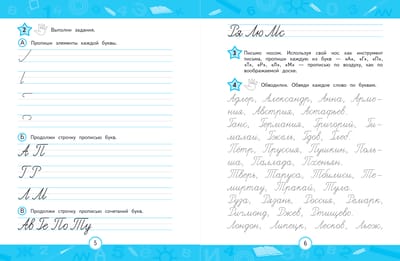 2 Выполни задания.
А Пропиши элементы каждой буквы.
Б Продолжи строчку прописью букв.
А П
Г Р
Л М
В Продолжи строчку прописью сочетаний букв.
Ав Ге По Ту
5
Ря Лю Мс
3 Письмо носом. Используя свой нос как инструмент
письма, пропиши каждую из букв — «А», «Г», «П»,
«Т», «Р», «Л», «М» — прописью по воздуху, как по
воображаемой доске.
4 Обводилки. Обведи каждое слово по буквам.
Адлер, Александр, Анна, Арме-
ния, Австрия,
Ганс, Германия, Григорий, Ги-
малаи, Гжель, Гдов,
Пётр, Пруссия, Пушкин, Поль-
ша, Паллада,
Тверь, Таруса, Тбилиси, Те-
миртау, Тракай, Тула.
Руза, Рязань, Россия, Ромарк,
Лондон, Липецк, Лесков, Льеж,
6